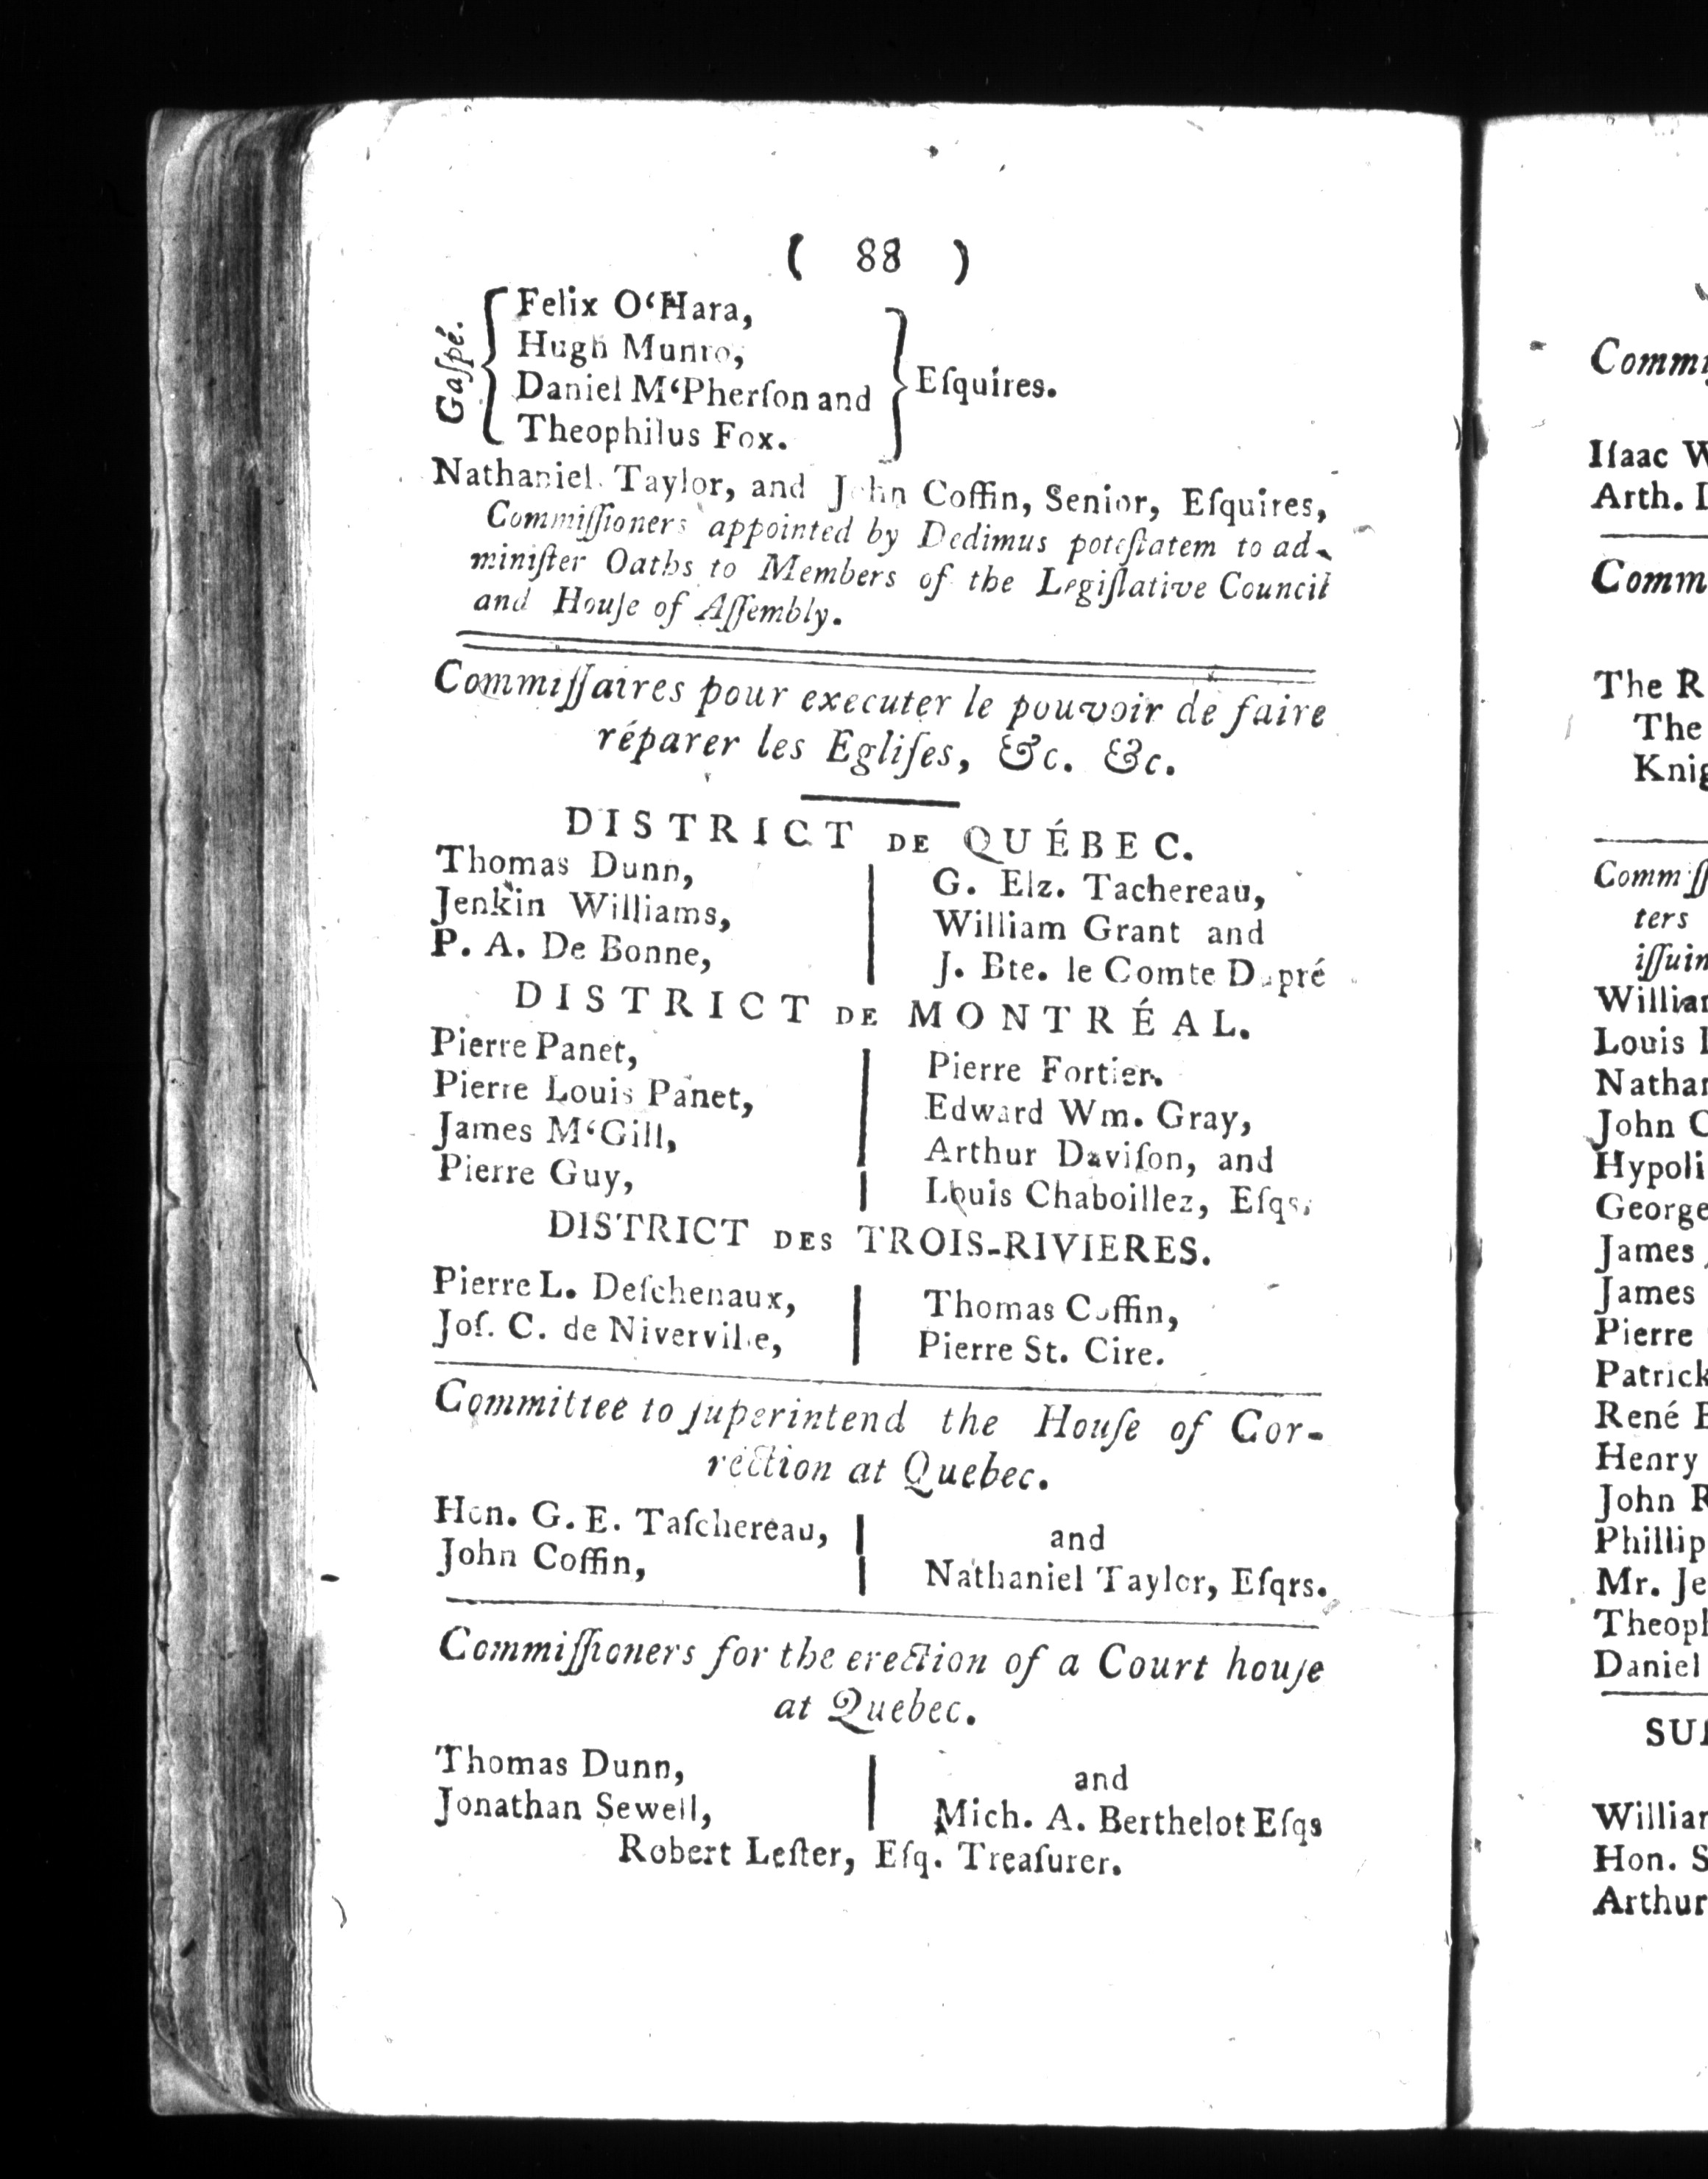 ( 88 )
Gaſpé.
Felix O‘Hara,
Hugh Munro,
Daniel M‘Pherſon and
Theophilus Fox.
Eſquires.
Nathaniel Taylor, and John Coffin, Senior, Eſquires,
Commiſſioners appointed by Dedimus poteſtatem to ad-
miniſter Oaths to Members of the Legiſlative Council
and Houſe of Aſſembly.
Commiſſaires pour executer le pouvoir de faire
réparer les Egliſes, &c. &c.
DISTRICT DE QUÉBEC.
Thomas Dunn,
Jenkin Williams,
P. A. De Bonne,
G. Elz. Tachereau,
William Grant and
J. Bte. le Comte Dupré
DISTRICT DE MONTRÉAL.
Pierre Panet,
Pierre Louis Panet,
James M‘Gill,
Pierre Guy,
Pierre Fortier.
Edward Wm. Gray,
Arthur Daviſon, and
Louis Chaboillez, Eſqs.
DISTRICT DES TROIS-RIVIERES.
Pierre L. Deſchenaux,
Joſ. C. de Niverville,
Thomas Coffin,
Pierre St. Cire.
Committee to ſuperintend the Houſe of Cor-
rection at Quebec.
Hon. G. E. Taſchereau,
John Coffin,
and
Nathaniel Taylor, Eſqrs.
Commiſſioners for the erection of a Court houſe
at Quebec.
Thomas Dunn,
Jonathan Sewell,
and
Mich. A. Berthelot Eſqs
Robert Leſter, Eſq. Treaſurer.
Iſaac
Arth.
The
The
ters
Louis
John
James
James
Pierre
René
Henry
John
Mr.
Daniel
Hon.